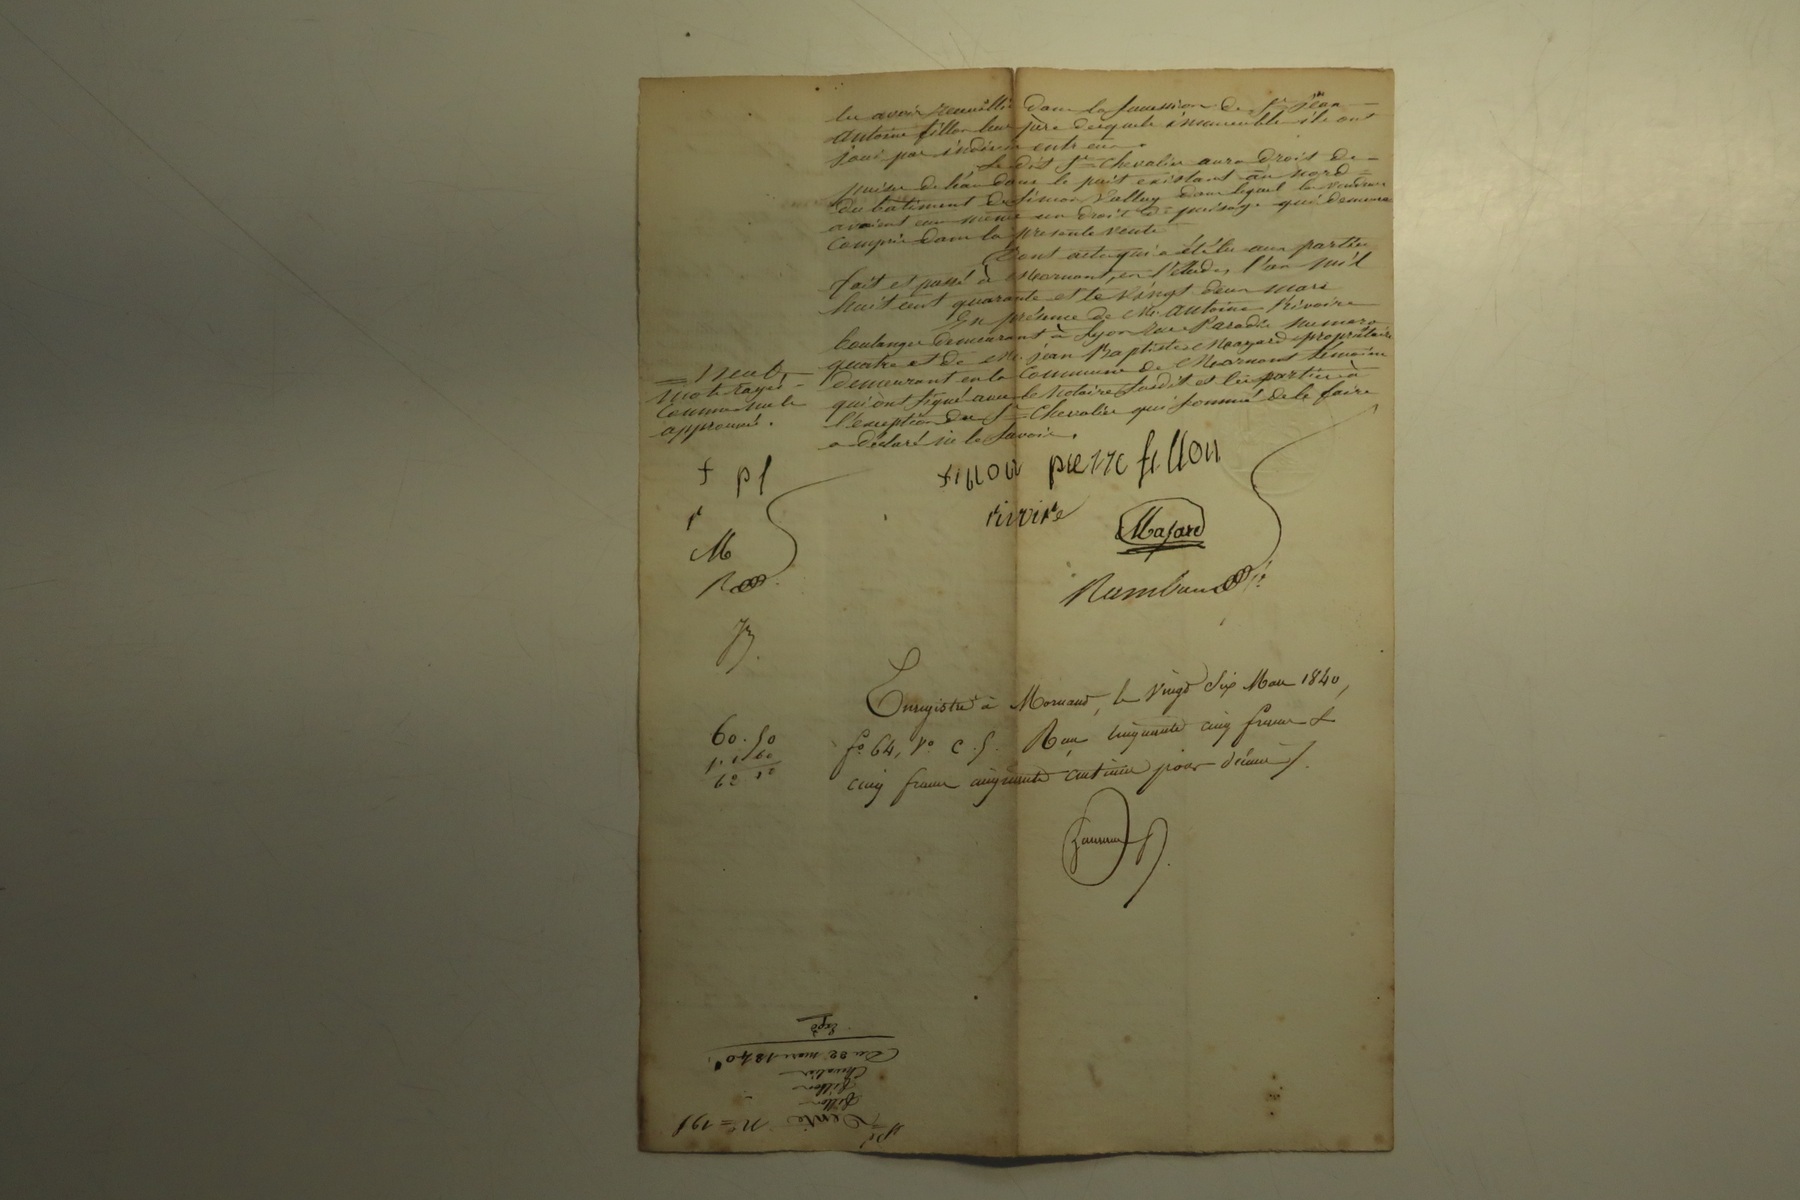 les avoir recueillis dans la succession de Sr jean
antoine fillon leur père desquels immeubles ils ont
joui par indivis entr'eux.
Le dit Sr Chevalier aura droit de
puiser de l'eau dans le puit existant au nord
du bâtiment de Simon Valluy dans lequel les vendeurs
avaient eux même un droit de puisage qui demeure
compris dans la presente vente
Dont acte qui a été lu aux parties
fait et passé à Mornant, en l'étude, l'an mil
huit cent quarante et le vingt deux mars
En présence de Mr. Antoine Rivoire
boulanger demeurant à Lyon rue Paradis numero
quatre et de Mr. jean Baptiste Mazard propriétaire
demeurant en la Commune de Mornant témoins
qui ont signé avec le Notaire susdit et les parties à
l'exception du Sr Chevalier qui sommé de le faire
a déclaré ne le savoir.
mots rayés
comme nuls
approuvés.
f pf
r
M
R
fillon pierre fillon
rivoire
Mazard
Rambaud
Enregistré à Mornant, le vingt six Mars 1840,
fo. 64, Vo. C. 5. Reçu cinquante cinq francs &
cinq francs cinquante centimes pour décime
60.50
Expé
Du 22 mars 1840
Chevalier
fillon
fillon
Vente No = 191